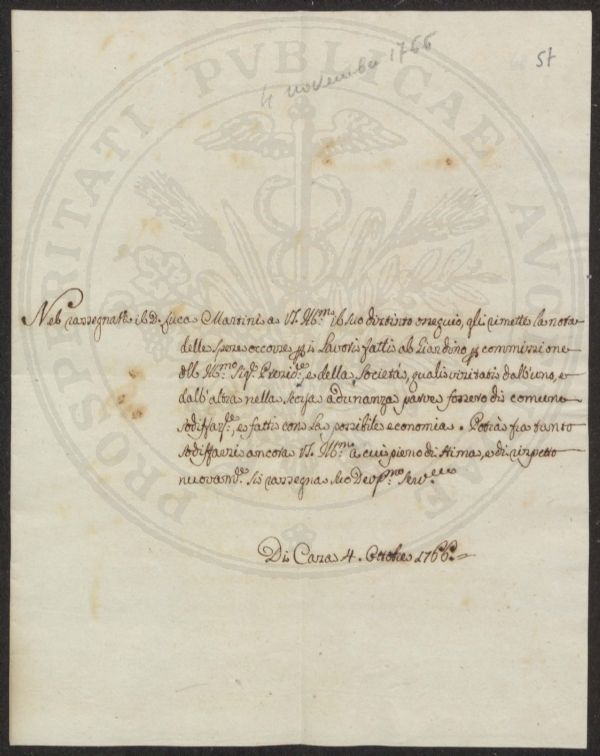 4 novembre 1766
57
PROSPERITATI PVBLICAE AVG
Nel rassegnarsi il D. Luca Martini a V. Ill.mo il suo distinto ossequio, gli rimette la nota
delle spese occorse p i Lavori fatti al Giardino p commissione
dell' Ill.mo Sig.e Presid.e e della Società, quali visitati dall'uno, e
dall'altra nella scorsa adunanza parve fossero di comune
sodisfaz.e, e fatti con la possibile economia. Potrà fra tanto
sodisfarsi ancora V. Ill.mo a cui pieno di stima, e di rispetto
nuovam.e si rassegna suo Dev.mo Serv.e
Di Casa 4. Ottobre 1766.